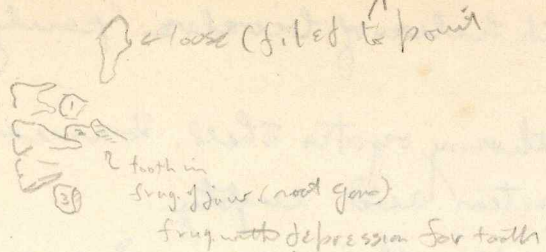 loose (filed to point
1
2
tooth in
frag. of jaw (root gone)
3
frag. with depression for tooth